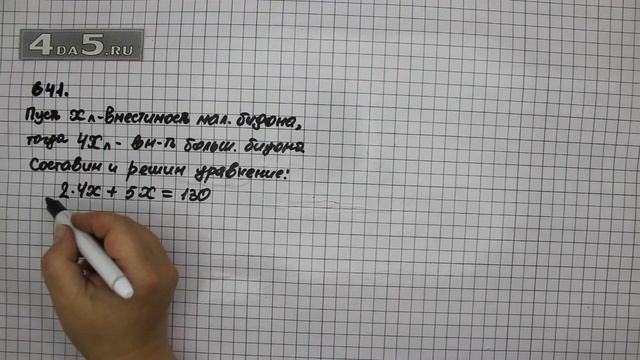 4DA5.RU
641.
Пусть x л - вместимость мал. бидона,
тогда 4x л - вм-ть больш. бидона
Составим и решим уравнение:
2·4x + 5x = 130